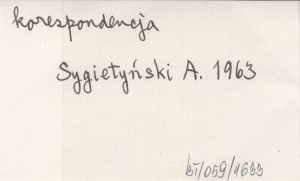 korespondencja
Sygietyński A. 1963
bт/059/1633